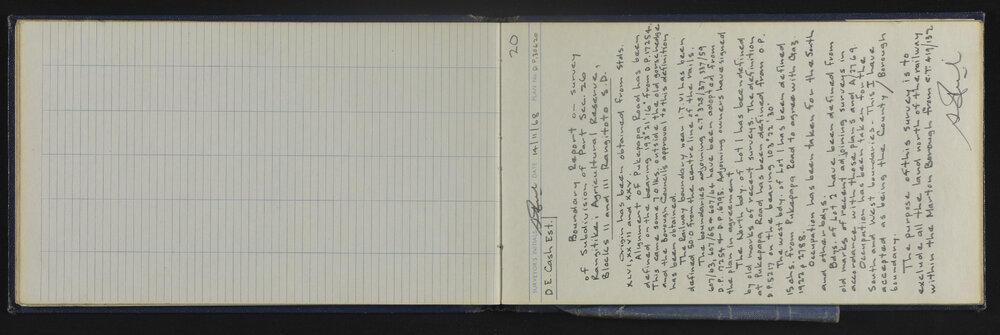 20
SURVEYOR'S INITIALS DATE 14/11/68 PLAN NO D.P. 30620
D.E. Cash Est.
Boundary Report on survey
of Subdivision of Part Sec. 26
Rangitikei Agricultural Reserve,
Blocks II and III Rangitoto S.D.
Origin has been obtained from Stds.
XVI, XXVII and XXV.
Alignment of Pukepapa Road has been
defined on the bearing 193°21'16" from D.P. 17254.
This came some 70 lks. outside the old gorse hedge
and the Borough Councils approval to this definition
has been obtained.
The Railway boundary near IT VI has been
defined 50.0 from the centre line of the rails.
The boundaries adjoining 338/37, 337/59
607/63, 607/65 & 607/66 have been adopted from
D.P. 17254 & D.P. 6795. Adjoining owners have signed
the plan in agreement
The north bdy. of Lot 1 has been defined
by old marks of recent surveys. The definition
at Pukepapa Road has been defined from O.P.
D.P. 5217 on the bearing 103°22'30"
The west bdy. of Lot 1 has been defined
15 chs. from Pukepapa Road to agree with Gaz.
1922 p 2788.
Occupation has been taken for the South
and other bdys.
Bdys. of Lot 2 have been defined from
old marks of recent adjoining surveys in
accordance with those plans and A/2769.
Occupation has been taken for the
South and West boundaries. This I have
accepted as being the County/Borough
boundary.
The purpose of this survey is to
exclude all the land north of the railway
within the Marton Borough from C.T. 419/132